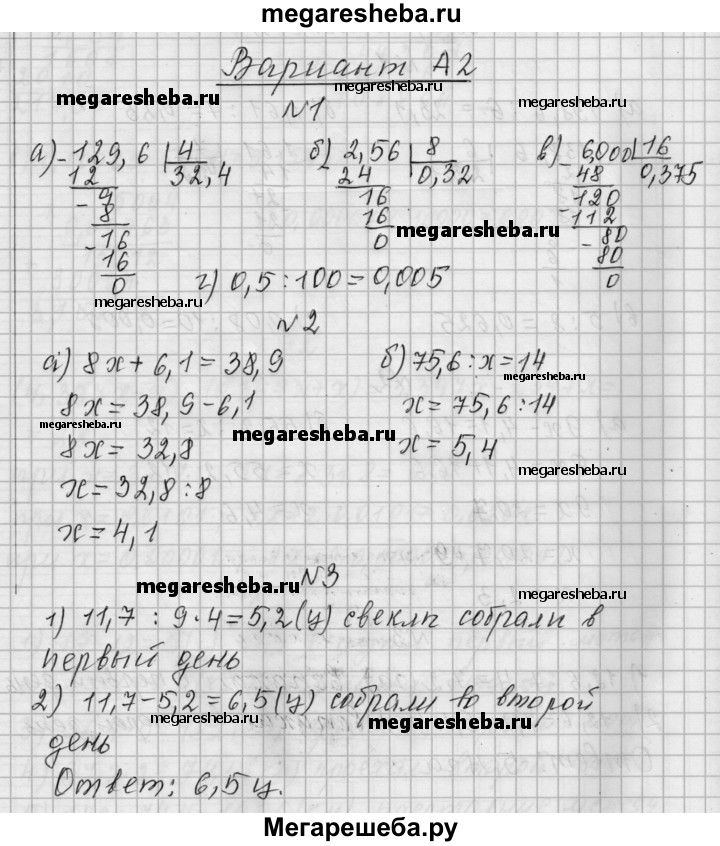 megaresheba.ru
Вариант А2
megaresheba.ru
megaresheba.ru
№1
megaresheba.ru
а) -129,6 | 4
12 32,4
- 9
8
- 16
16
0
б) 2,56 | 8
- 24 0,32
16
16
0
в) 6,000 | 16
- 48 0,375
- 120
112
- 80
80
0
megaresheba.ru
megaresheba.ru
г) 0,5 : 100 = 0,005
№2
а) 8x + 6,1 = 38,9
8x = 38,9 - 6,1
8x = 32,8
x = 32,8 : 8
x = 4,1
б) 75,6 : x = 14
x = 75,6 : 14
x = 5,4
megaresheba.ru
megaresheba.ru
megaresheba.ru
megaresheba.ru
№3
megaresheba.ru
megaresheba.ru
1) 11,7 : 9 · 4 = 5,2 (ц) свеклы собрали в
первый день
2) 11,7 - 5,2 = 6,5 (ц) собрали во второй
megaresheba.ru
megaresheba.ru
день
Ответ: 6,5 ц.
megaresheba.ru
Мегарешеба.ру